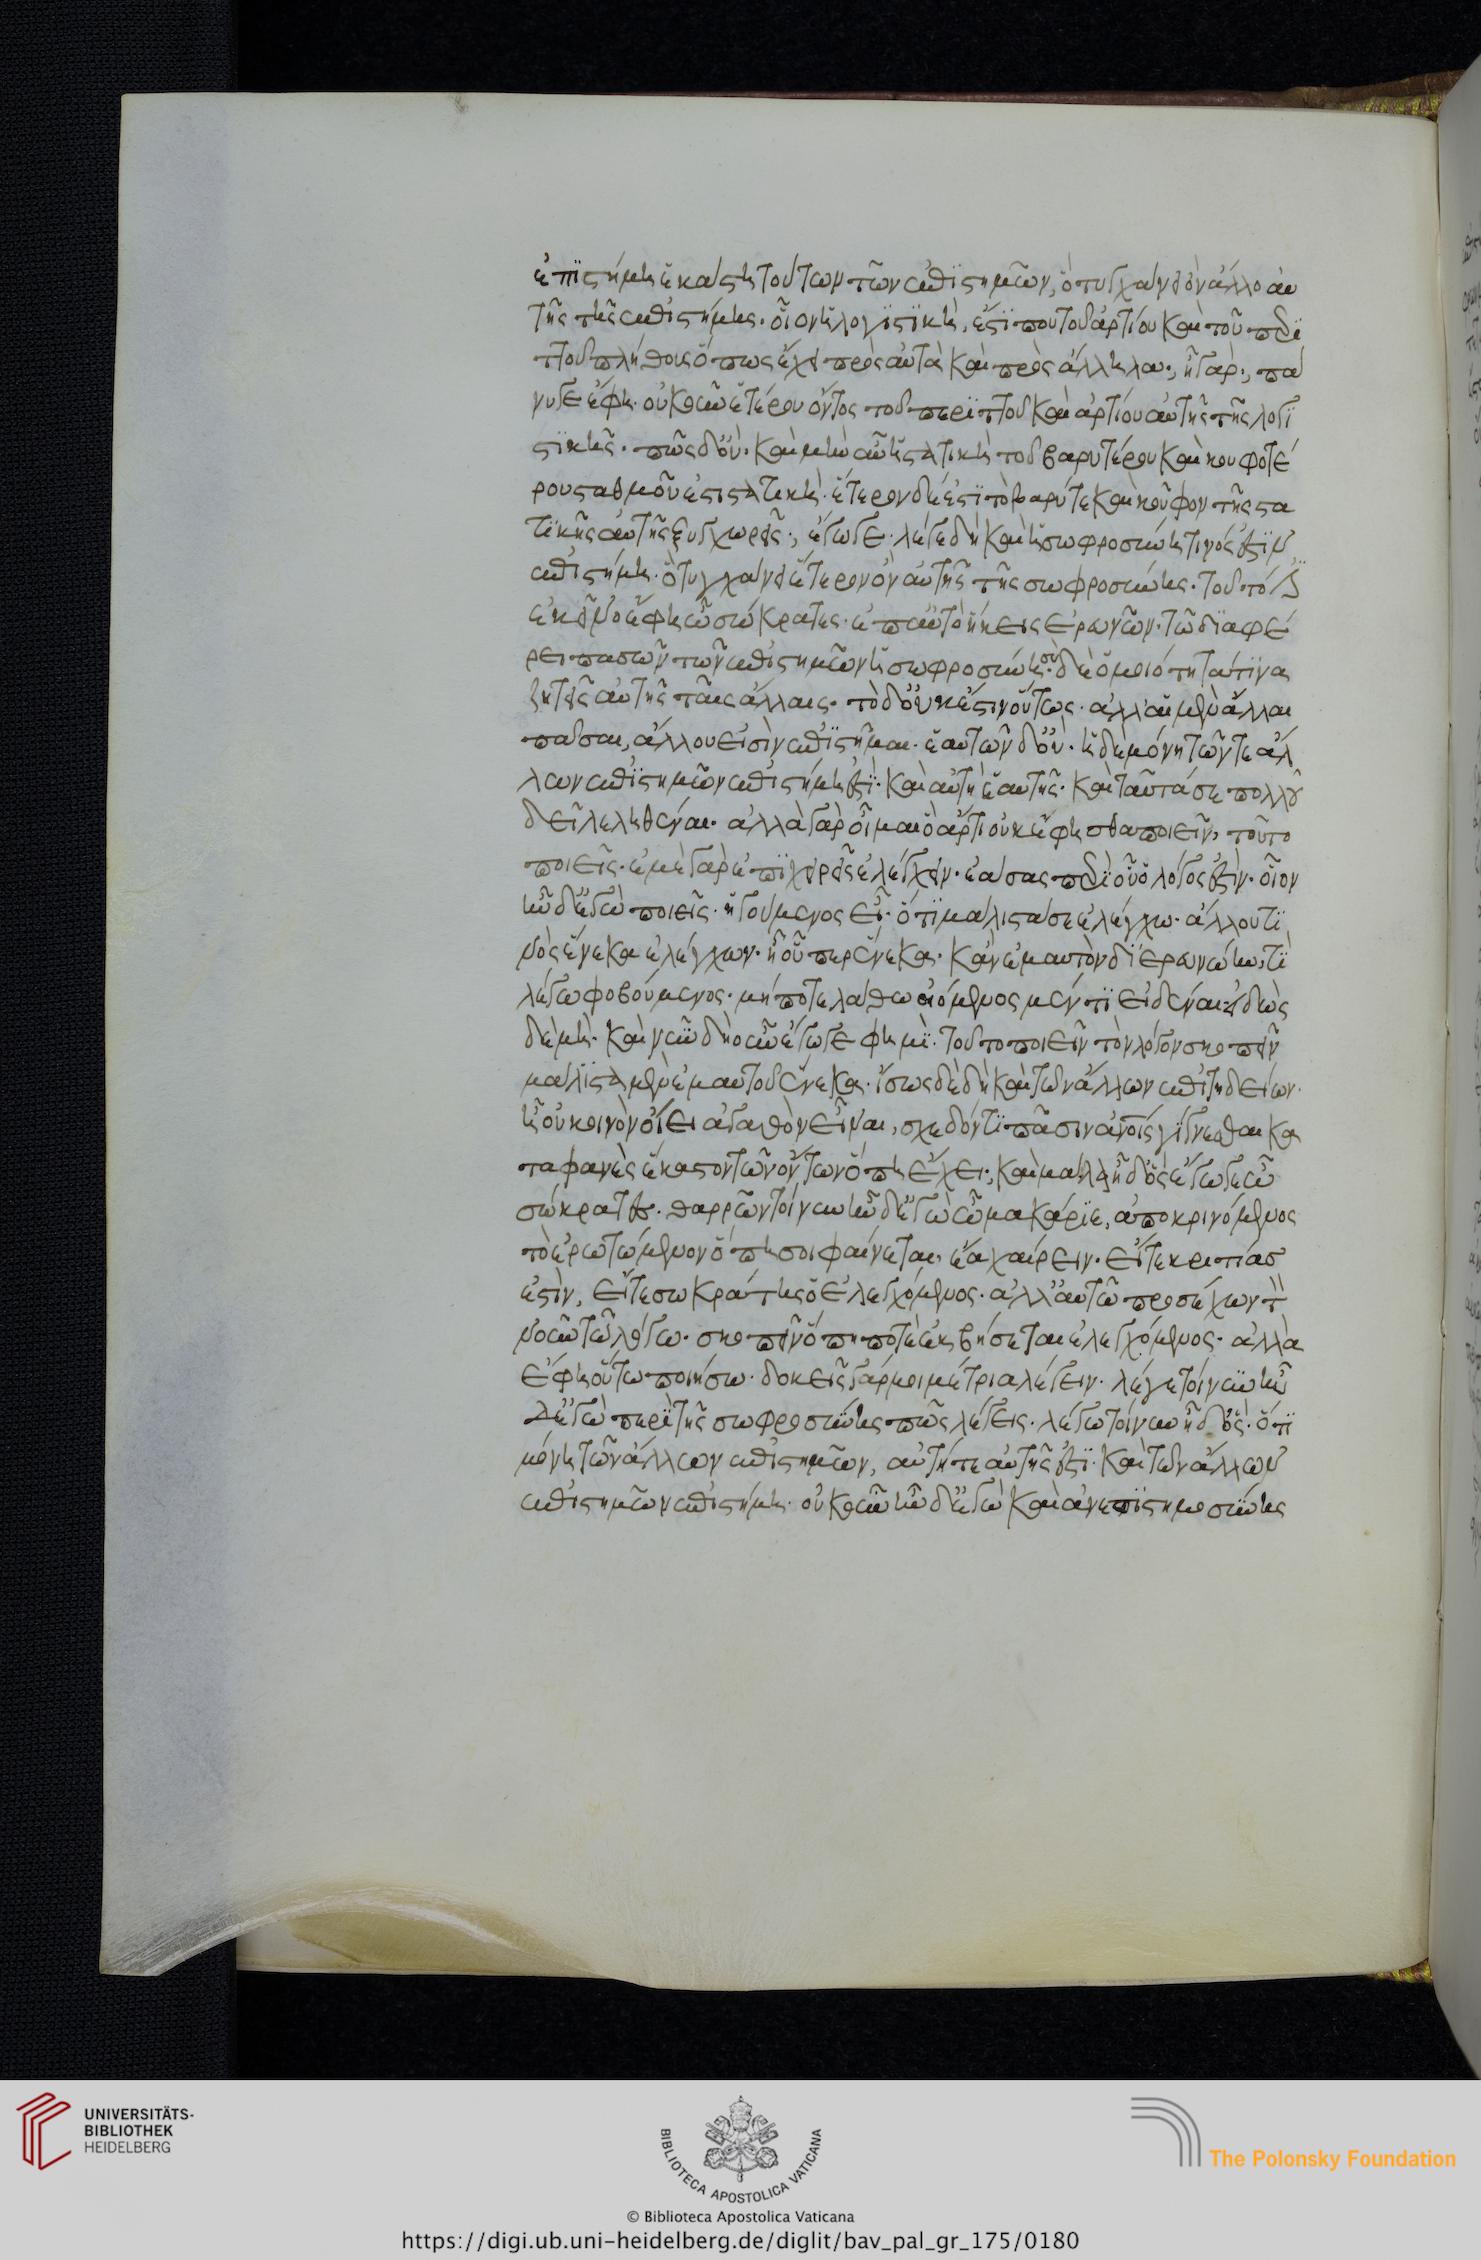 ἐπϊστήμη ἑκάστη τούτων τῶν ἐπϊστημῶν, ὃ τυγχάνει ὂν ἄλλο αὐ
τῆς τῆς ἐπιστήμης. οἷον ἡ λογϊστϊκὴ, ἐστὶ που τοῦ ἀρτίου καὶ τοῦ περϊτ
τοῦ πλήθους ὅπως ἔχει πρὸς αὐτὰ καὶ πρὸς ἄλληλα., ἦ γάρ., πά
νυ γε ἔφη. οὐκοῦν ἑτέρου ὄντος τοῦ περϊττοῦ καὶ ἀρτίου αὐτῆς τῆς λογϊ
στϊκῆς. πῶς δ' οὔ. καὶ μὴν αὖ ἡ στατικὴ τοῦ βαρυτέρου καὶ κουφοτέ
ρου σταθμοῦ ἐστι στατικὴ. ἕτερον δέ ἐστϊ τὸ βαρύ τε καὶ κοῦφον τῆς στα
τϊκῆς αὐτῆς ξυγχωρεῖς., ἔγωγε. λέγε δὴ καὶ ἡ σωφροσύνη τινός ἐστϊν
ἐπιστήμη. ὃ τυγχάνει ἕτερον ὂν αὐτῆς τῆς σωφροσύνης. τοῦτό ἐστϊν
ἐκεῖνο ἔφη ὦ σώκρατες. ἐπ' αὐτὸ ἥκεις ἐρευνῶν. τῶ διαφέ
ρει πασῶν τῶν ἐπιστημῶν ἡ σωφροσύνη. σὺ δὲ ὁμοιότητά τϊνα
ζητεῖς αὐτῆς ταῖς ἄλλαις. τὸ δ' οὐκ ἔστιν οὕτως. ἀλλ' αἱ μὲν ἄλλαι
πᾶσαι, ἄλλου εἰσὶν ἐπϊστῆμαι. ἑαυτῶν δ' οὔ. ἡ δὲ μόνη τῶν τε ἄλ
λων ἐπϊστημῶν ἐπιστήμη ἐστϊ. καὶ αὐτὴ ἑαυτῆς. καὶ ταῦτά σε πολλοῦ
δεῖ λεληθέναι. ἀλλὰ γὰρ οἶμαι ὃ ἄρτι οὐκ ἔφησθα ποιεῖν, τοῦτο
ποιεῖς. ἐμὲ γὰρ ἐπϊχειρεῖς ἐλέγχειν. ἐάσας περὶ οὗ ὁ λόγος ἐστὶν. οἷον
ἦν δ' ἐγὼ ποιεῖς. ἡγούμενος εἶ. ὅτϊ μάλιστα σε ἐλέγχω. ἄλλου τϊ
νὸς ἕνεκα ἐλέγχων. ἢ οὗπερ ἕνεκα. κἂν ἐμαυτὸν διερευνώην, τϊ
λέγω φοβούμενος. μή ποτε λάθω οἰόμενος μέν τϊ εἰδέναι. εἰδὼς
δὲ μὴ. καὶ νῦν δὴ οὖν ἔγωγε φημϊ. τοῦτο ποιεῖν τὸν λόγον σκοπεῖν
μάλϊστα μὲν ἐμαυτοῦ ἕνεκα. ἴσως δὲ δὴ καὶ τῶν ἄλλων ἐπιτηδείων.
ἢ οὐ κοινὸν οἴει ἀγαθὸν εἶναι, σχεδόν τϊ πᾶσιν ἀνοις γίγνεσθαι κα
ταφανὲς ἕκαστον τῶν ὄντων ὅπη ἔχει., καὶ μάλα ἦ δ' ὃς ἔγωγε ὦ
σώκρατες. θαρρῶν τοίνυν ἦν δ' ἐγὼ ὦ μακάριε, ἀποκρινόμενος
τὸ ἐρωτώμενον ὅπη σοι φαίνεται, ἔα χαίρειν. εἴτε κριτίας
ἐστὶν, εἴτε σωκράτης ὁ ἐλεγχόμενος. ἀλλ' αὐτῶ προσέχων τὸν
νοῦν τῶ λόγω. σκόπει ὅπη ποτὲ ἐκβήσεται ἐλεγχόμενος. ἀλλὰ
ἔφη οὕτω ποιήσω. δοκεῖς γάρ μοι μέτρια λέγειν. λέγε τοίνυν ἦν
δ' ἐγὼ περὶ τῆς σωφροσύνης πῶς λέγεις. λέγω τοίνυν ἦ δ' ὃς. ὅτϊ
μόνη τῶν ἄλλων ἐπιστημῶν, αὐτή τε αὐτῆς ἐστϊ. καὶ τῶν ἄλλων
ἐπιστημῶν ἐπιστήμη. οὐκοῦν ἦν δ' ἐγὼ καὶ ἀνεπϊστημοσύνης
UNIVERSITÄTS-
BIBLIOTHEK
HEIDELBERG
BIBLIOTECA APOSTOLICA VATICANA
The Polonsky Foundation
© Biblioteca Apostolica Vaticana
https://digi.ub.uni-heidelberg.de/diglit/bav_pal_gr_175/0180